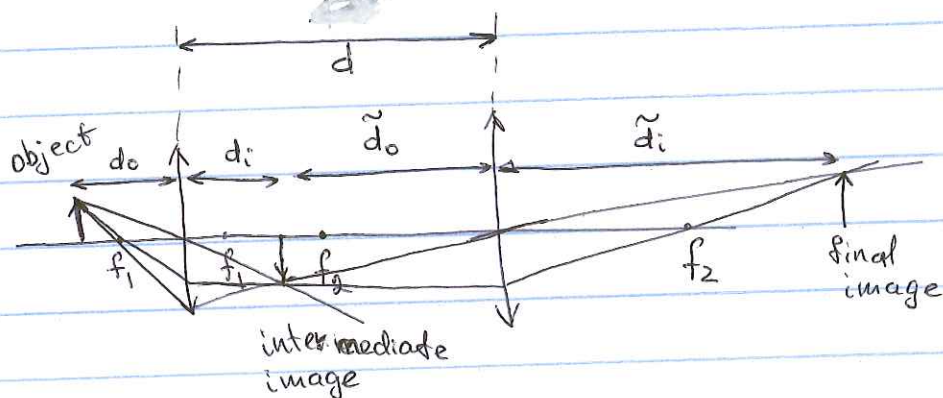 d
object
d₀
dᵢ
d̃₀
d̃ᵢ
f₁
f₁
f₂
f₂
final
image
intermediate
image